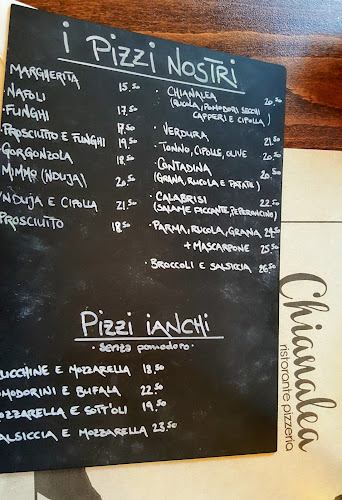 i Pizzi NOSTRI
MARGHERITA 15.50
·NAPOLI 17.50
·FUNGHI
·PROSCIUTTO E FUNGHI 19.50
·GORGONZOLA 18.50
MIMMO (NDUJA) 20.50
NDUJA E CIPOLLA 21.50
PROSCIUTTO 18.50
· CHIANALEA
(RUCOLA, POMODORI SECCHI 20.50
CAPPERI E CIPOLLA)
· VERDURA 21.50
· TONNO, CIPOLLE, OLIVE 20.50
· CONTADINA
(GRANA, RUCOLA E PATATE) 20.50
· CALABRISI 22.50
(SALAME PICCANTE, PEPERONCINO)
· PARMA, RUCOLA, GRANA
+ MASCARPONE 25.50
· BROCCOLI E SALSICCIA
Pizzi iANCHi
· senza pomodoro ·
UCCHINE E MOZZARELLA 18.50
OMODORINI E BUFALA 22.50
OZZARELLA E SOTT'OLI 19.50
ALSICCIA E MOZZARELLA 23.50
Chianalea
ristorante pizzeria